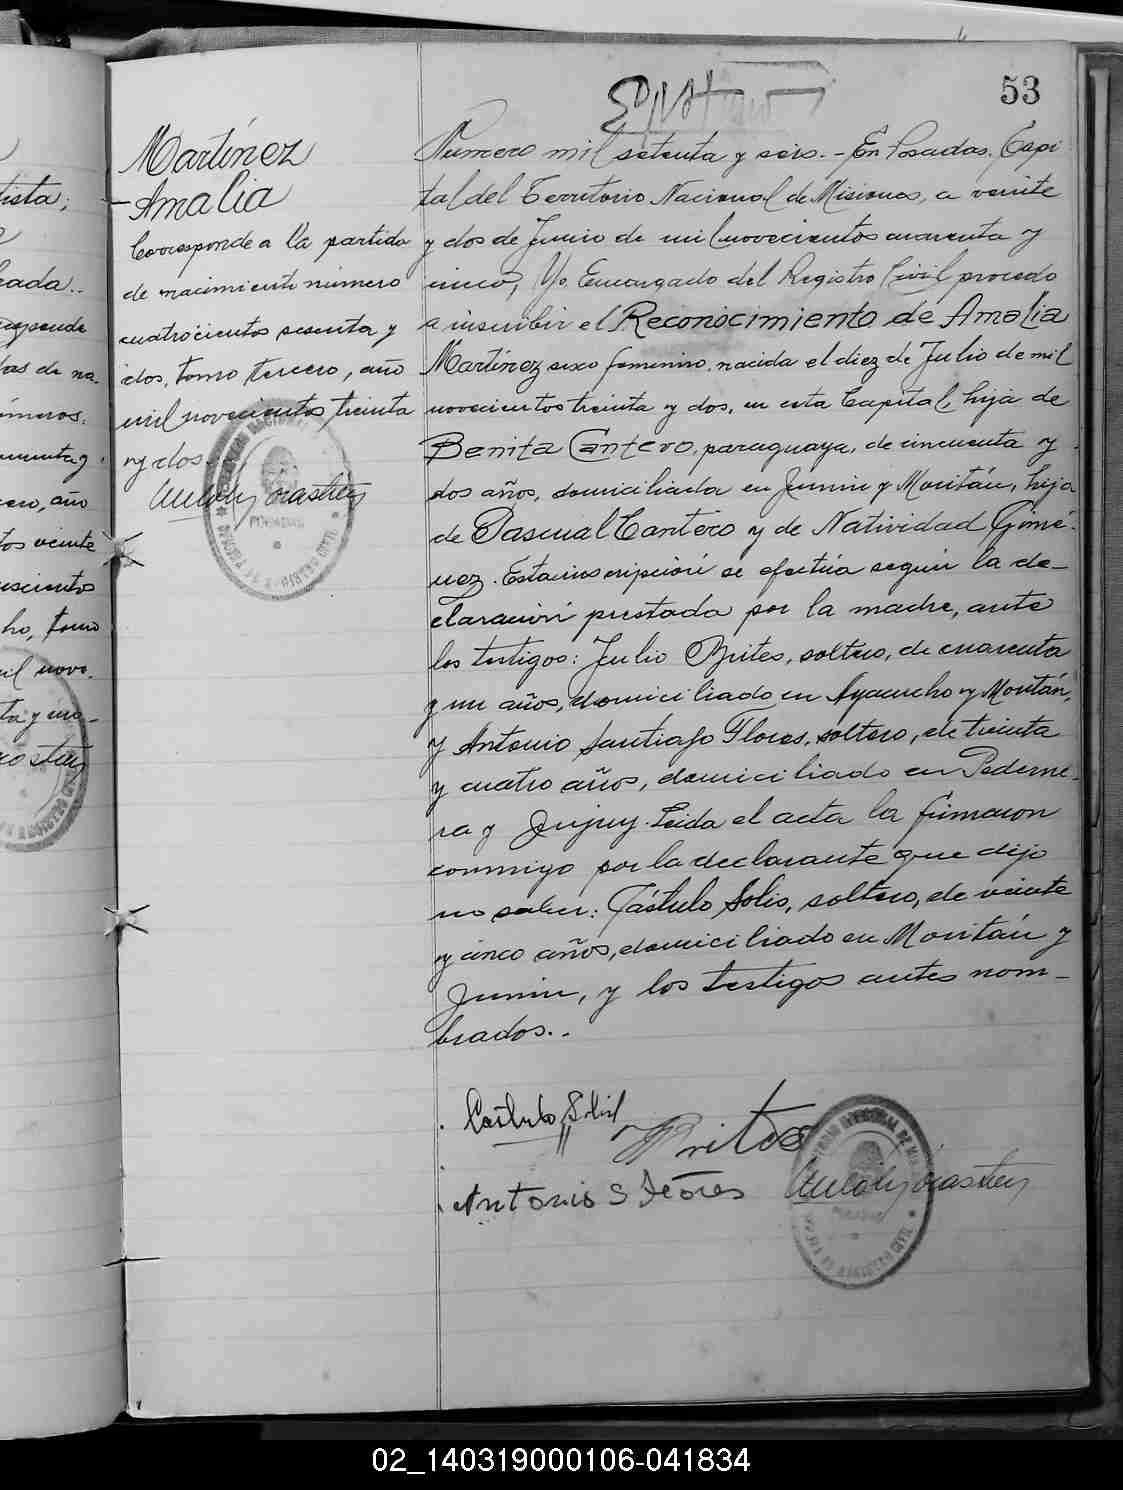 53
Martínez
Amalia
Corresponde a la partida
de nacimiento número
cuatrocientos sesenta y
dos, tomo tercero, año
mil novecientos treinta
y dos.
Numero mil setenta y seis. - En Posadas, Capi
tal del Territorio Nacional de Misiones, a veinte
y dos de Junio de mil novecientos cuarenta y
cinco, Yo, Encargado del Registro Civil procedo
a inscribir el Reconocimiento de Amalia
Martínez sexo femenino, nacida el diez de Julio de mil
novecientos treinta y dos, en esta Capital, hija de
Benita Cantero, paraguaya, de cincuenta y
dos años, domiciliada en Junin y Moritán, hija
de Pascual Cantero y de Natividad Gimé-
nez. Esta inscripción se efectúa según la de-
claración prestada por la madre, ante
los testigos: Julio Brites, soltero, de cuarenta
y un años, domiciliado en Ayacucho y Moritán,
y Antonio Santiago Flores, soltero, de treinta
y cuatro años, domiciliado en Pederne-
ra y Jujuy. Leida el acta la firmaron
conmigo por la declarante que dijo
no saber: Cástulo Solis, soltero, de veinte
y cinco años, domiciliado en Moritán y
Junin, y los testigos antes nom-
brados..
Castulo Solis
Brites
Antonio S Flores
02_140319000106-041834